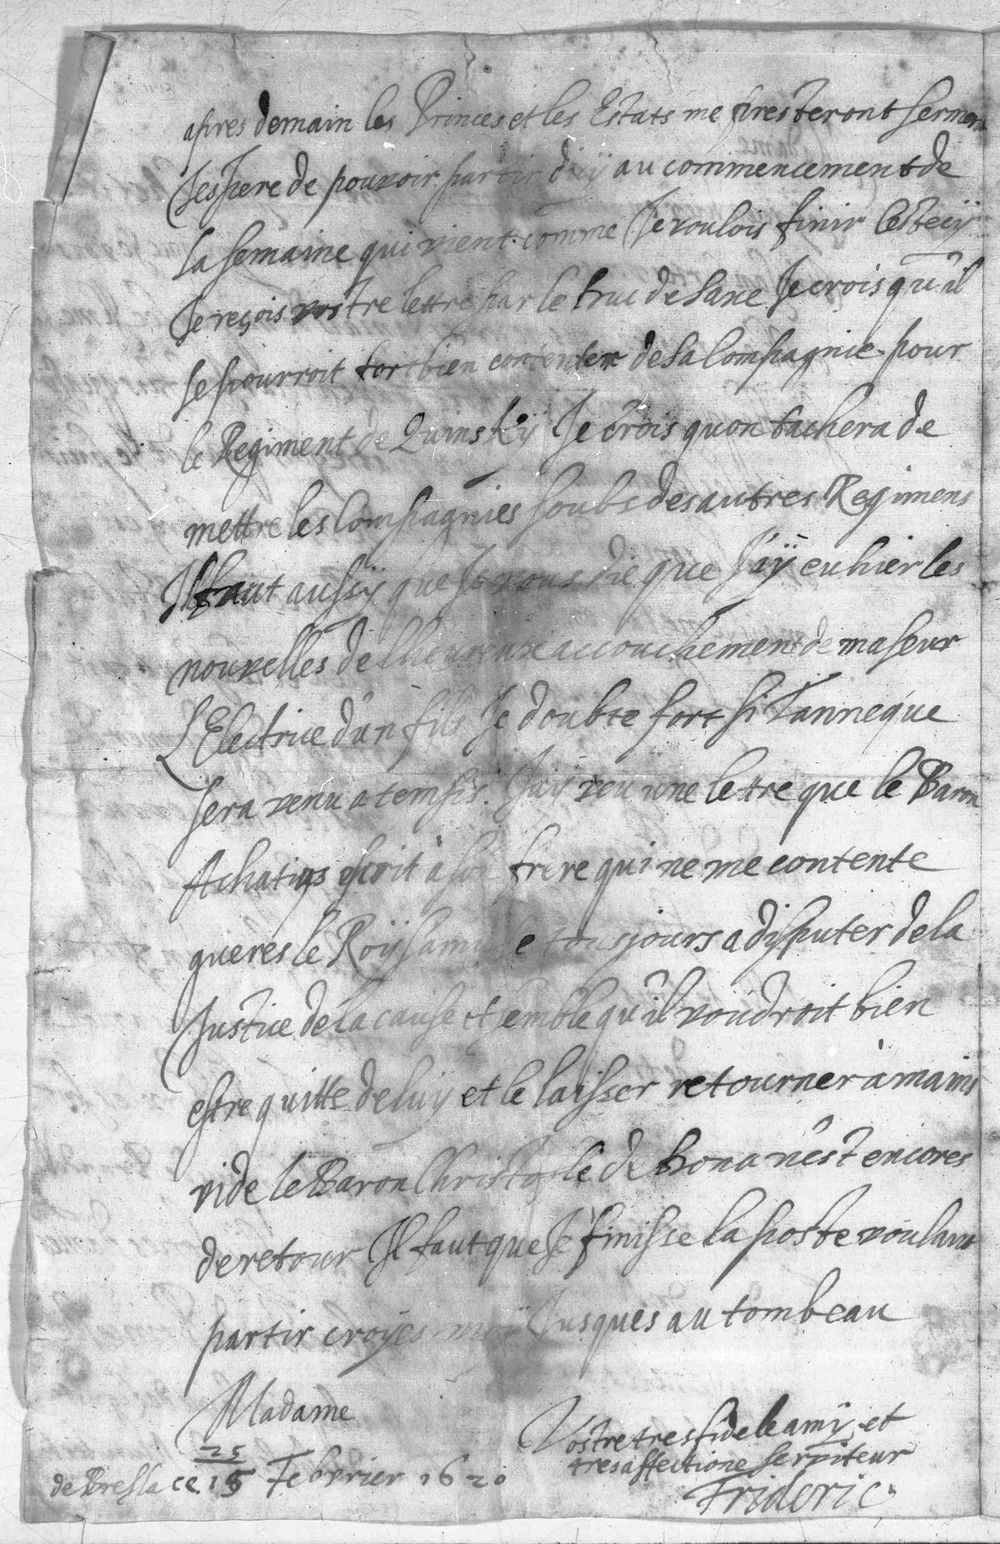 apres demain les Princes et les Estats me presteront serment
Jespere de pouvoir partir d'icy au commencement de
la semaine qui vient comme Je voulois finir cestecy
Je reçois vostre lettre par le Duc de Saxe Je crois qu'il
se pourroit fort bien contenter de sa Compagnie pour
le Regiment de Quinsky Je crois quon tachera de
mettre les Compagnies soubs des autres Regimens
Il faut aussy que Je vous die que J'ay eu hier les
nouvelles de lheureux accouchement de ma seur
L'Electrice d'un fils Je doubte fort si Tanneque
sera venu a temps. J'ay veu une lettre que le Baron
Achatius escrit à son frere qui ne me contente
gueres le Roy samuse tousjours a disputer de la
Justice de la cause et semble qu'il voudroit bien
estre quitte de luy et le laisser retourner à mains
vide le Baron Christofle de Dona n'est encores
de retour Il faut que Je finisse la poste voulant
partir croyés moy Jusques au tombeau
Madame
Vostre tres fidele amy et
tres affectione serviteur
Frideric
de Breslace 25/15 Febvrier 1620